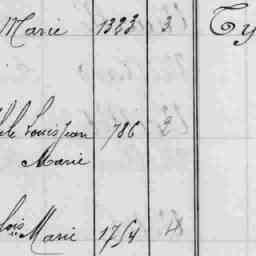 Marie 1323 3 Ty
le Louis Jean 786 2
Marie
Marie 1754 4